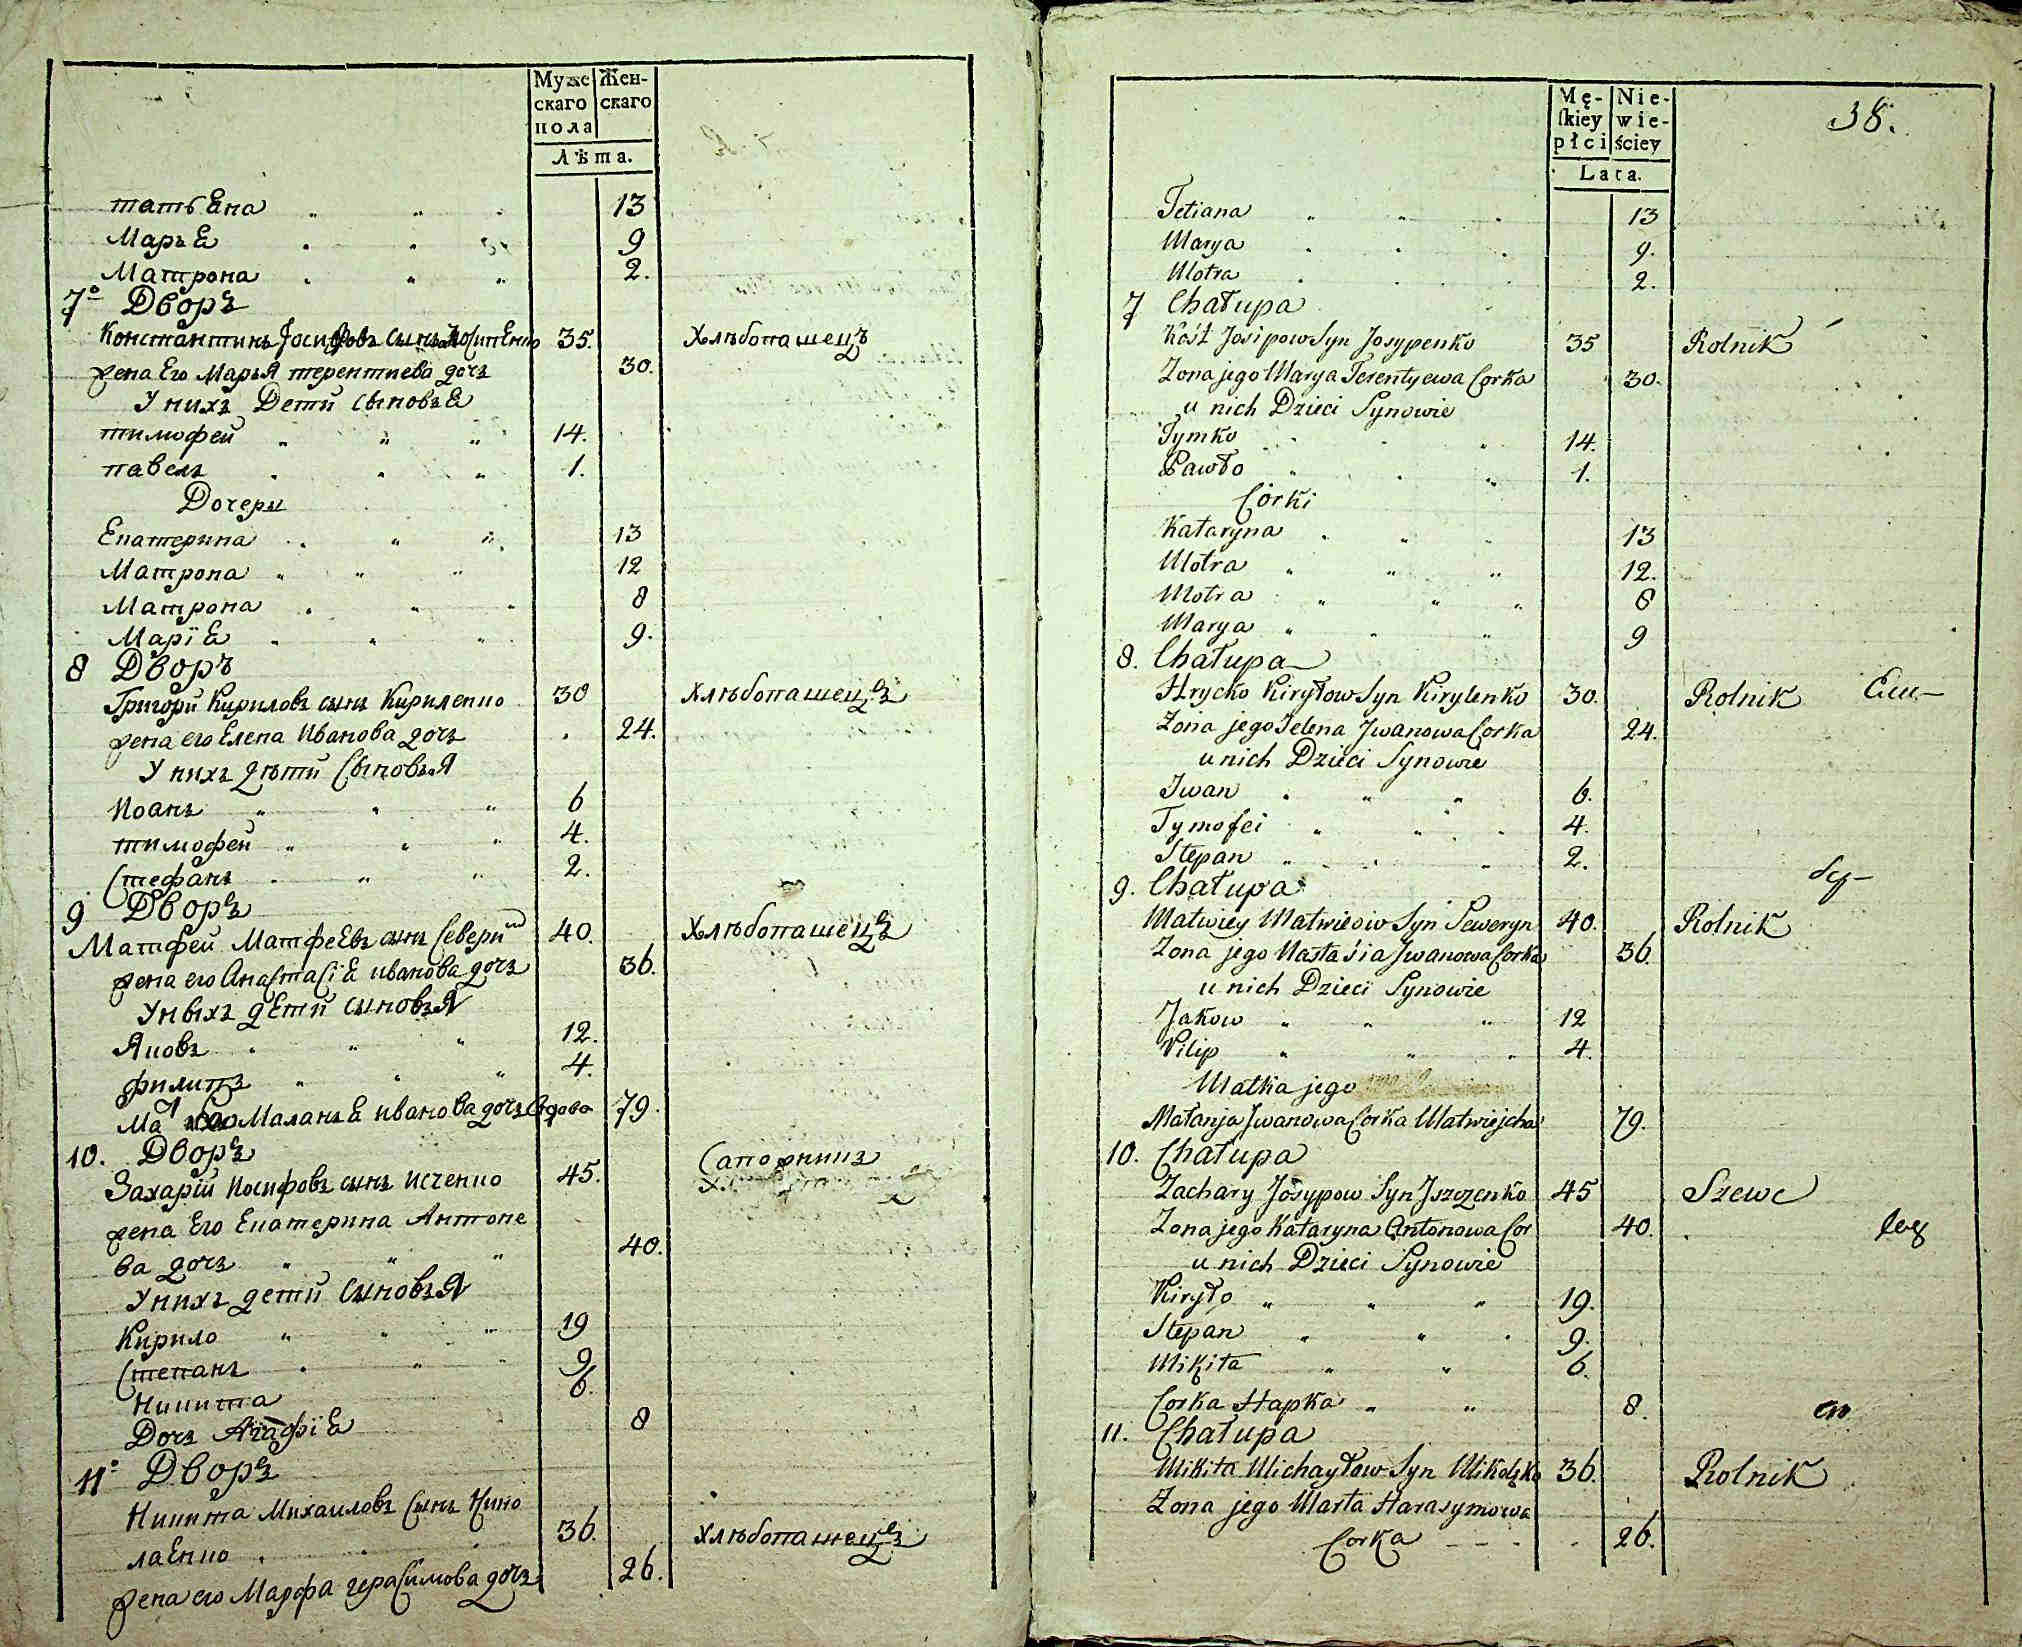 Муже Жен-
скаго скаго
пола
Лѣта.
татьEна 13
МарьE 9
Матрона 2.
7º Дворъ
Константинъ Іосифовъ сынъ 35. Хлѣбопашецъ
жена Его Марья терентиева дочь 30.
У нихъ Дети сыновьE
тимофей 14.
павелъ 1.
Дочери
Екатерина 13
Матрона 12
Матрона 8
МаріE 9.
8 Дворъ
Григори Кириловъ сынъ Кириленко 30 Хлѣбопашецъ
жена его Елена Иванова дочь 24.
У нихъ дѣти Сыновья
Иоанъ 6
тимофей 4.
Стефанъ 2.
9 Дворъ
Матфей МатфеЕвъ сынъ Северин 40. Хлѣбопашецъ
жена его АнастасіE иванова дочь 36.
Уныхъ дЕти сыновья
Яковъ 12.
филипъ 4.
Ма МаланьE иванова дочь вдова 79.
10. Дворъ
Захарій Иосифовъ сынъ Исченко 45. Сапожникъ
жена Его Екатерина Антоне
ва дочь 40.
Унихъ дети Сыновья
Кирило 19
Степанъ 9
Никита 6.
Дочь АгафіE 8
11º Дворъ
Никита Михаиловъ Сынъ Нико
лаЕнко 36. Хлѣбопашецъ
жена его Марфа герасимова дочь 26.
Mę- Nie-
ſkiey wie-
płci ściey
Lata.
38.
Tetiana 13
Marya 9.
Motra 2.
7 Chałupa
Kość Josipow Syn Josypenko 35 Rolnik
Zona jego Marya Terentyewa Corka 30.
u nich Dzieci Synowie
Tymko 14.
Pawło 1.
Córki
Kataryna 13
Motra 12.
Motra 8
Marya 9
8. Chałupa
Hrycko Kiryłow Syn Kirylenko 30. Rolnik
Zona jego Jelena Jwanowa Corka 24.
u nich Dzieci Synowie
Jwan 6.
Tymofei 4.
Stepan 2.
9. Chałupa
Matwiey Matwieiow Syn Seweryn 40. Rolnik
Zona jego Nastasia Jwanowa Corka 36.
u nich Dzieci Synowie
Jakow 12
Filip 4.
Matka jego
Małanja Jwanowa Corka Matwiejcha 79.
10. Chałupa
Zachary Josypow Syn Jszczenko 45 Szewc
Zona jego Kataryna Antonowa Cor 40.
u nich Dzieci Synowie
Kiryło 19.
Stepan 9.
Mikita 6.
Corka Hapka 8.
11. Chałupa
Mikita Michayłow Syn 36. Rolnik
Zona jego Marta Harasymowa
Corka 26.